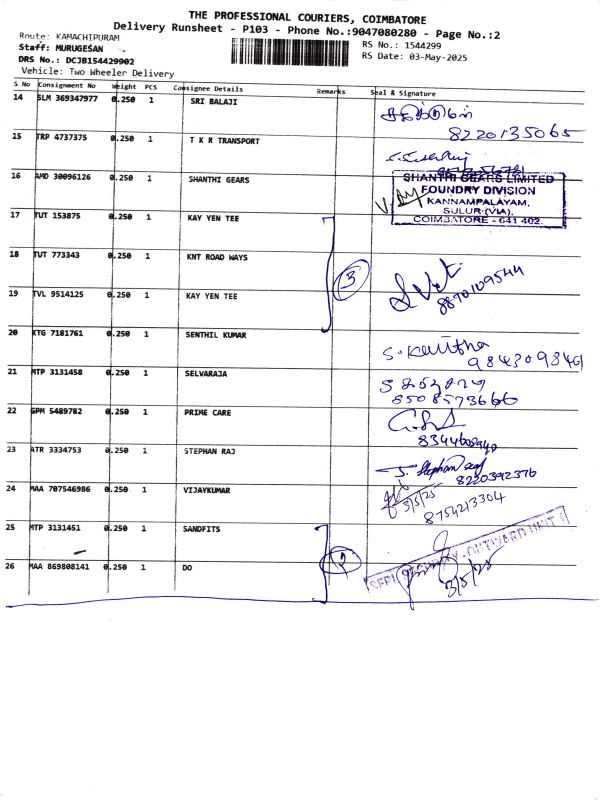 THE PROFESSIONAL COURIERS, COIMBATORE
Delivery Runsheet - P103 - Phone No.:9047080280 - Page No.:2
Route: KAMACHIPURAM
RS No.: 1544299
Staff: MURUGESAN
DRS No.: DCJB154429902
RS Date: 03-May-2025
Vehicle: Two Wheeler Delivery
S No Consignment No Weight PCS Consignee Details Remarks Seal & Signature
14 SLM 369347977 0.250 1 SRI BALAJI
8220135065
15 TRP 4737375 0.250 1 T K R TRANSPORT
16 AMD 30096126 0.250 1 SHANTHI GEARS
SHANTHI GEARS LIMITED
FOUNDRY DIVISION
KANNAMPALAYAM,
SULUR (VIA),
COIMBATORE - 641 402.
17 TUT 153875 0.250 1 KAY YEN TEE
18 TUT 773343 0.250 1 KNT ROAD WAYS
3
8870109544
19 TVL 9514125 0.250 1 KAY YEN TEE
20 KTG 7181761 0.250 1 SENTHIL KUMAR
S. Kavitha
9843098461
21 MTP 3131458 0.250 1 SELVARAJA
8508573666
22 GPM 5489782 0.250 1 PRIME CARE
23 ATR 3334753 0.250 1 STEPHAN RAJ
8220392376
24 MAA 707546986 0.250 1 VIJAYKUMAR
3/5/25
8754213304
25 MTP 3131451 0.250 1 SANDFITS
2
26 MAA 869808141 0.250 1 DO
3/5/25